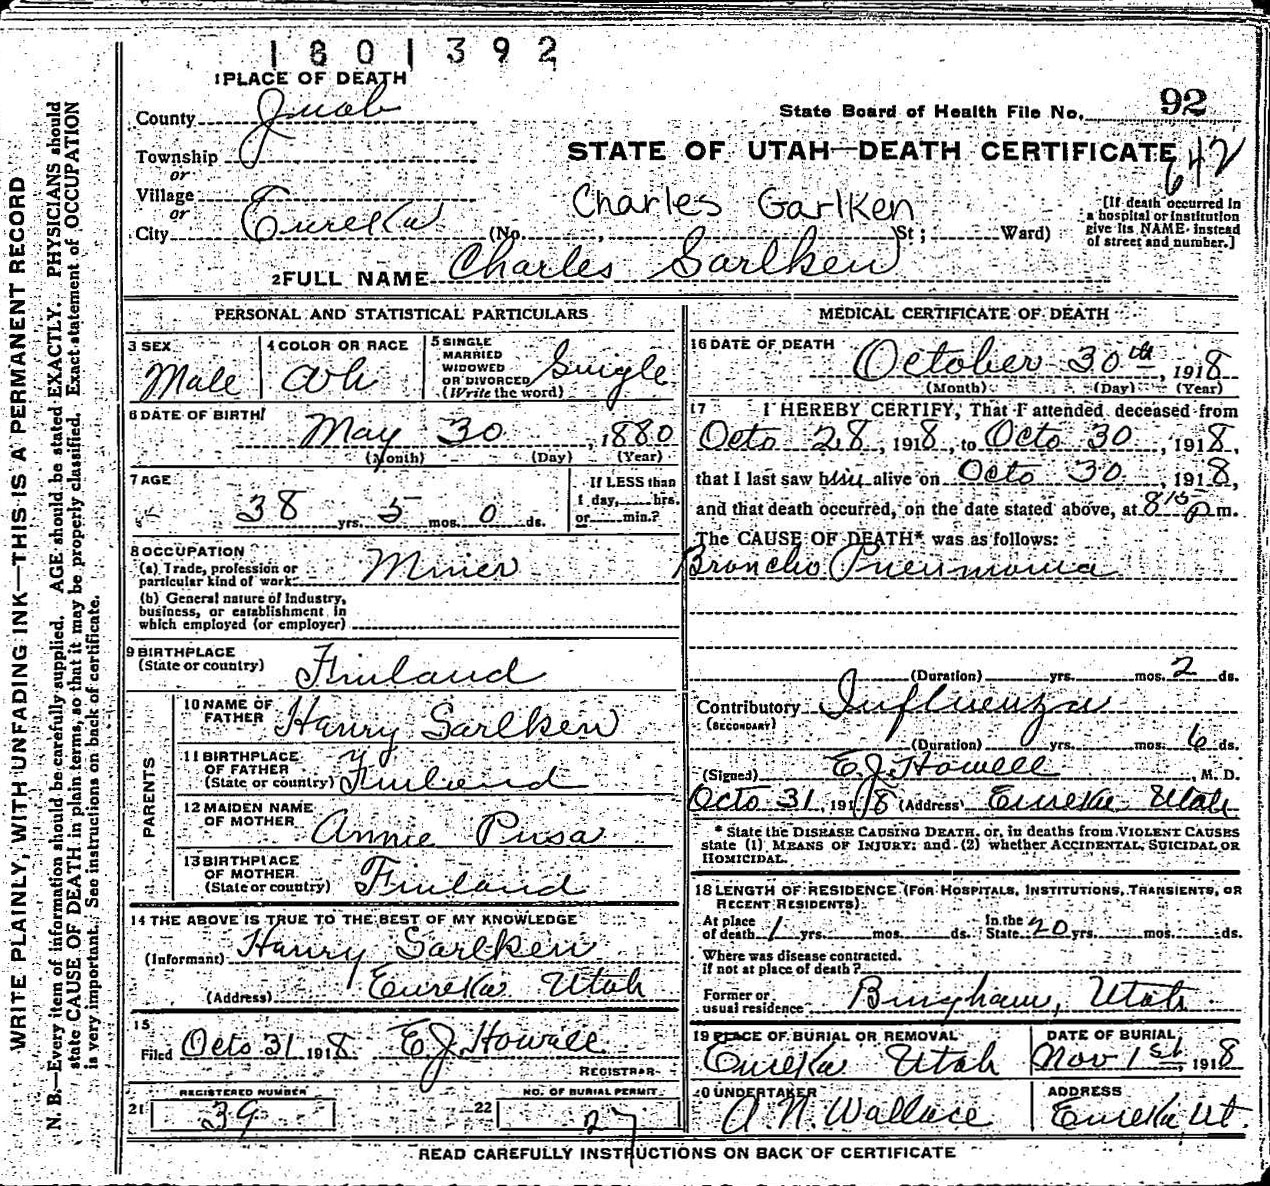 1801392
1 PLACE OF DEATH
County Juab
State Board of Health File No. 92
Township
or
STATE OF UTAH—DEATH CERTIFICATE
642
Village
or
Charles Garlken
City Eureka (No. , St; Ward)
[If death occurred in
a hospital or institution
give its NAME instead
of street and number.]
2 FULL NAME Charles Sarlken
WRITE PLAINLY, WITH UNFADING INK—THIS IS A PERMANENT RECORD
N. B.—Every item of information should be carefully supplied. AGE should be stated EXACTLY. PHYSICIANS should
state CAUSE OF DEATH in plain terms, so that it may be properly classified. Exact statement of OCCUPATION
is very important. See instructions on back of certificate.
PERSONAL AND STATISTICAL PARTICULARS
3 SEX
Male
4 COLOR OR RACE
Wh
5 SINGLE
MARRIED
WIDOWED
OR DIVORCED
(Write the word)
Single
6 DATE OF BIRTH
May 30, 1880
(Month) (Day) (Year)
7 AGE
38 yrs. 5 mos. 0 ds.
If LESS than
1 day, hrs.
or min.?
8 OCCUPATION
(a) Trade, profession or
particular kind of work Miner
(b) General nature of Industry,
business, or establishment in
which employed (or employer)
9 BIRTHPLACE
(State or country) Finland
PARENTS
10 NAME OF
FATHER Hanry Sarlken
11 BIRTHPLACE
OF FATHER
(State or country) Finland
12 MAIDEN NAME
OF MOTHER Annie Pusa
13 BIRTHPLACE
OF MOTHER
(State or country) Finland
14 THE ABOVE IS TRUE TO THE BEST OF MY KNOWLEDGE
(Informant) Hanry Sarlken
(Address) Eureka Utah
15
Filed Octo 31 1918 E J Howell
REGISTRAR
REGISTERED NUMBER
21 39
NO. OF BURIAL PERMIT
22 27
MEDICAL CERTIFICATE OF DEATH
16 DATE OF DEATH
October 30th, 1918
(Month) (Day) (Year)
17 I HEREBY CERTIFY, That I attended deceased from
Octo 28, 1918, to Octo 30, 1918,
that I last saw him alive on Octo 30, 1918,
and that death occurred, on the date stated above, at 8 15 P m.
The CAUSE OF DEATH* was as follows:
Broncho Pneumonia
(Duration) yrs. mos. 2 ds.
Contributory Influenza
(SECONDARY)
(Duration) yrs. mos. 6 ds.
(Signed) E. J. Howell, M. D.
Octo 31, 1918 (Address) Eureka Utah
* State the DISEASE CAUSING DEATH, or, in deaths from VIOLENT CAUSES
state (1) MEANS OF INJURY; and (2) whether ACCIDENTAL, SUICIDAL OR
HOMICIDAL.
18 LENGTH OF RESIDENCE (FOR HOSPITALS, INSTITUTIONS, TRANSIENTS, OR
RECENT RESIDENTS)
At place
of death 1 yrs. mos. ds.
In the
State 20 yrs. mos. ds.
Where was disease contracted,
if not at place of death?
Former or
usual residence Bingham, Utah
19 PLACE OF BURIAL OR REMOVAL
Eureka Utah
DATE OF BURIAL
Nov 1st, 1918
20 UNDERTAKER
A. N. Wallace
ADDRESS
Eureka, Ut.
READ CAREFULLY INSTRUCTIONS ON BACK OF CERTIFICATE